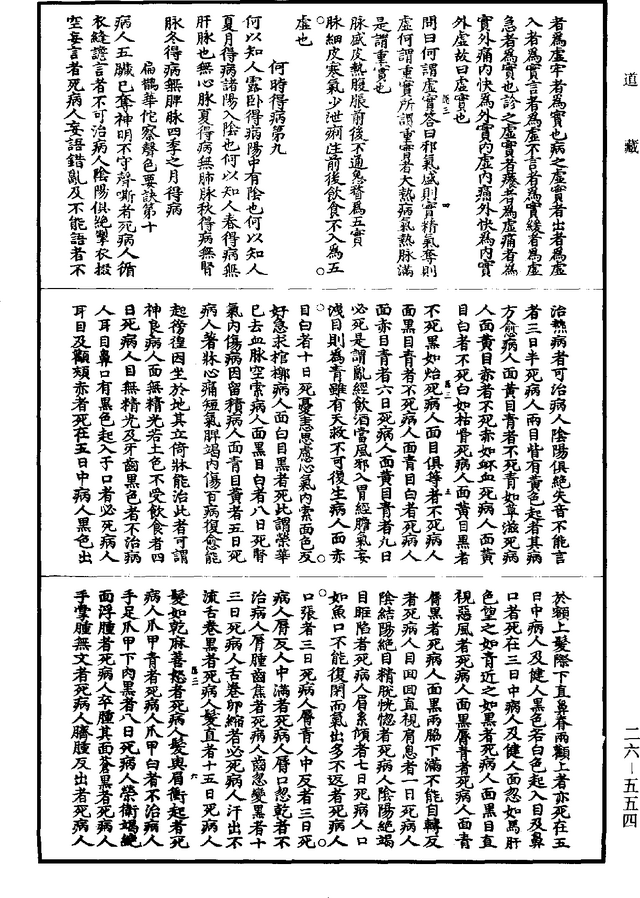 道藏
者為虛牢者為實也病之虛實者出者為虛
入者為實言者為虛不言者為實緩者為虛
急者為實也診之虛實者癢者為虛痛者為
實外痛內快為外實內虛內痛外快為內實
外虛故曰虛實也
問曰何謂虛實答曰邪氣盛則實精氣奪則
虛何謂重實所謂重實者大熱病氣熱脉滿
是謂重實也
脉盛皮熱腹脹前後不通悶瞀為五實
脉細皮寒氣少泄痢注前後飲食不入為五
虛也
何時得病第九
何以知人露臥得病陽中有陰也何以知人
夏月得病諸陽入陰也何以知人春得病無
肝脉也無心脉夏得病無肺脉秋得病無腎
脉冬得病無脾脉四季之月得病
扁鵲華佗察聲色要訣第十
病人五臟已奪神明不守聲嘶者死病人循
衣縫譫言者不可治病人陰陽俱絕掣衣掇
空妄言者死病人妄語錯亂及不能語者不
治熱病者可治病人陰陽俱絕失音不能言
者三日半死病人兩目眥有黃色起者其病
方愈病人面黃目青者不死青如草滋死病
人面黃目赤者不死赤如衃血死病人面黃
目白者不死白如枯骨死病人面黃目黑者
不死黑如炲死病人面目俱等者不死病人
面黑目青者不死病人面青目白者死病人
面赤目青者六日死病人面黃目青者九日
必死是謂亂經飲酒當風邪入胃經膽氣妄
泄目則為青雖有天救不可復生病人面赤
目白者十日死憂恚思慮心氣內索面色反
好急求棺槨病人面白目黑者死此謂榮華
已去血脉空索病人面黑目白者八日死腎
氣內傷病因留積病人面青目黃者五日死
病人著牀心痛短氣脾竭內傷百病復愈能
起徬徨因坐於地其立倚牀能治此者可謂
神良病人面無精光若土色不受飲食者四
日死病人目無精光及牙齒黑色者不治病
人耳目鼻口有黑色起入于口者必死病人
耳目及顴頰赤者死在五日中病人黑色出
於額上髮際下直鼻脊兩顴上者亦死在五
日中病人及健人黑色若白色起入目及鼻
口者死在三日中病人及健人面忽如馬肝
色望之如青近之如黑者死病人面黑目直
視惡風者死病人面黑唇青者死病人面青
唇黑者死病人面黑兩脇下滿不能自轉反
者死病人目回回直視肩息者一日死病人
陰結陽絕目精脫恍惚者死病人陰陽絕竭
目眶陷者死病人眉系傾者七日死病人口
如魚口不能復閉而氣出多不返者死病人
口張者三日死病人唇青人中反者三日死
病人唇反人中滿者死病人唇口忽乾者不
治病人唇腫齒焦者死病人齒忽變黑者十
三日死病人舌卷卵縮者必死病人汗出不
流舌卷黑者死病人髮直者十五日死病人
髮如乾麻善怒者死病人髮與眉衝起者死
病人爪甲青者死病人爪甲白者不治病人
手足爪甲下肉黑者八日死病人榮衛竭絕
面浮腫者死病人卒腫其面蒼黑者死病人
手掌腫無文者死病人臍腫反出者死病人
二六—五五四